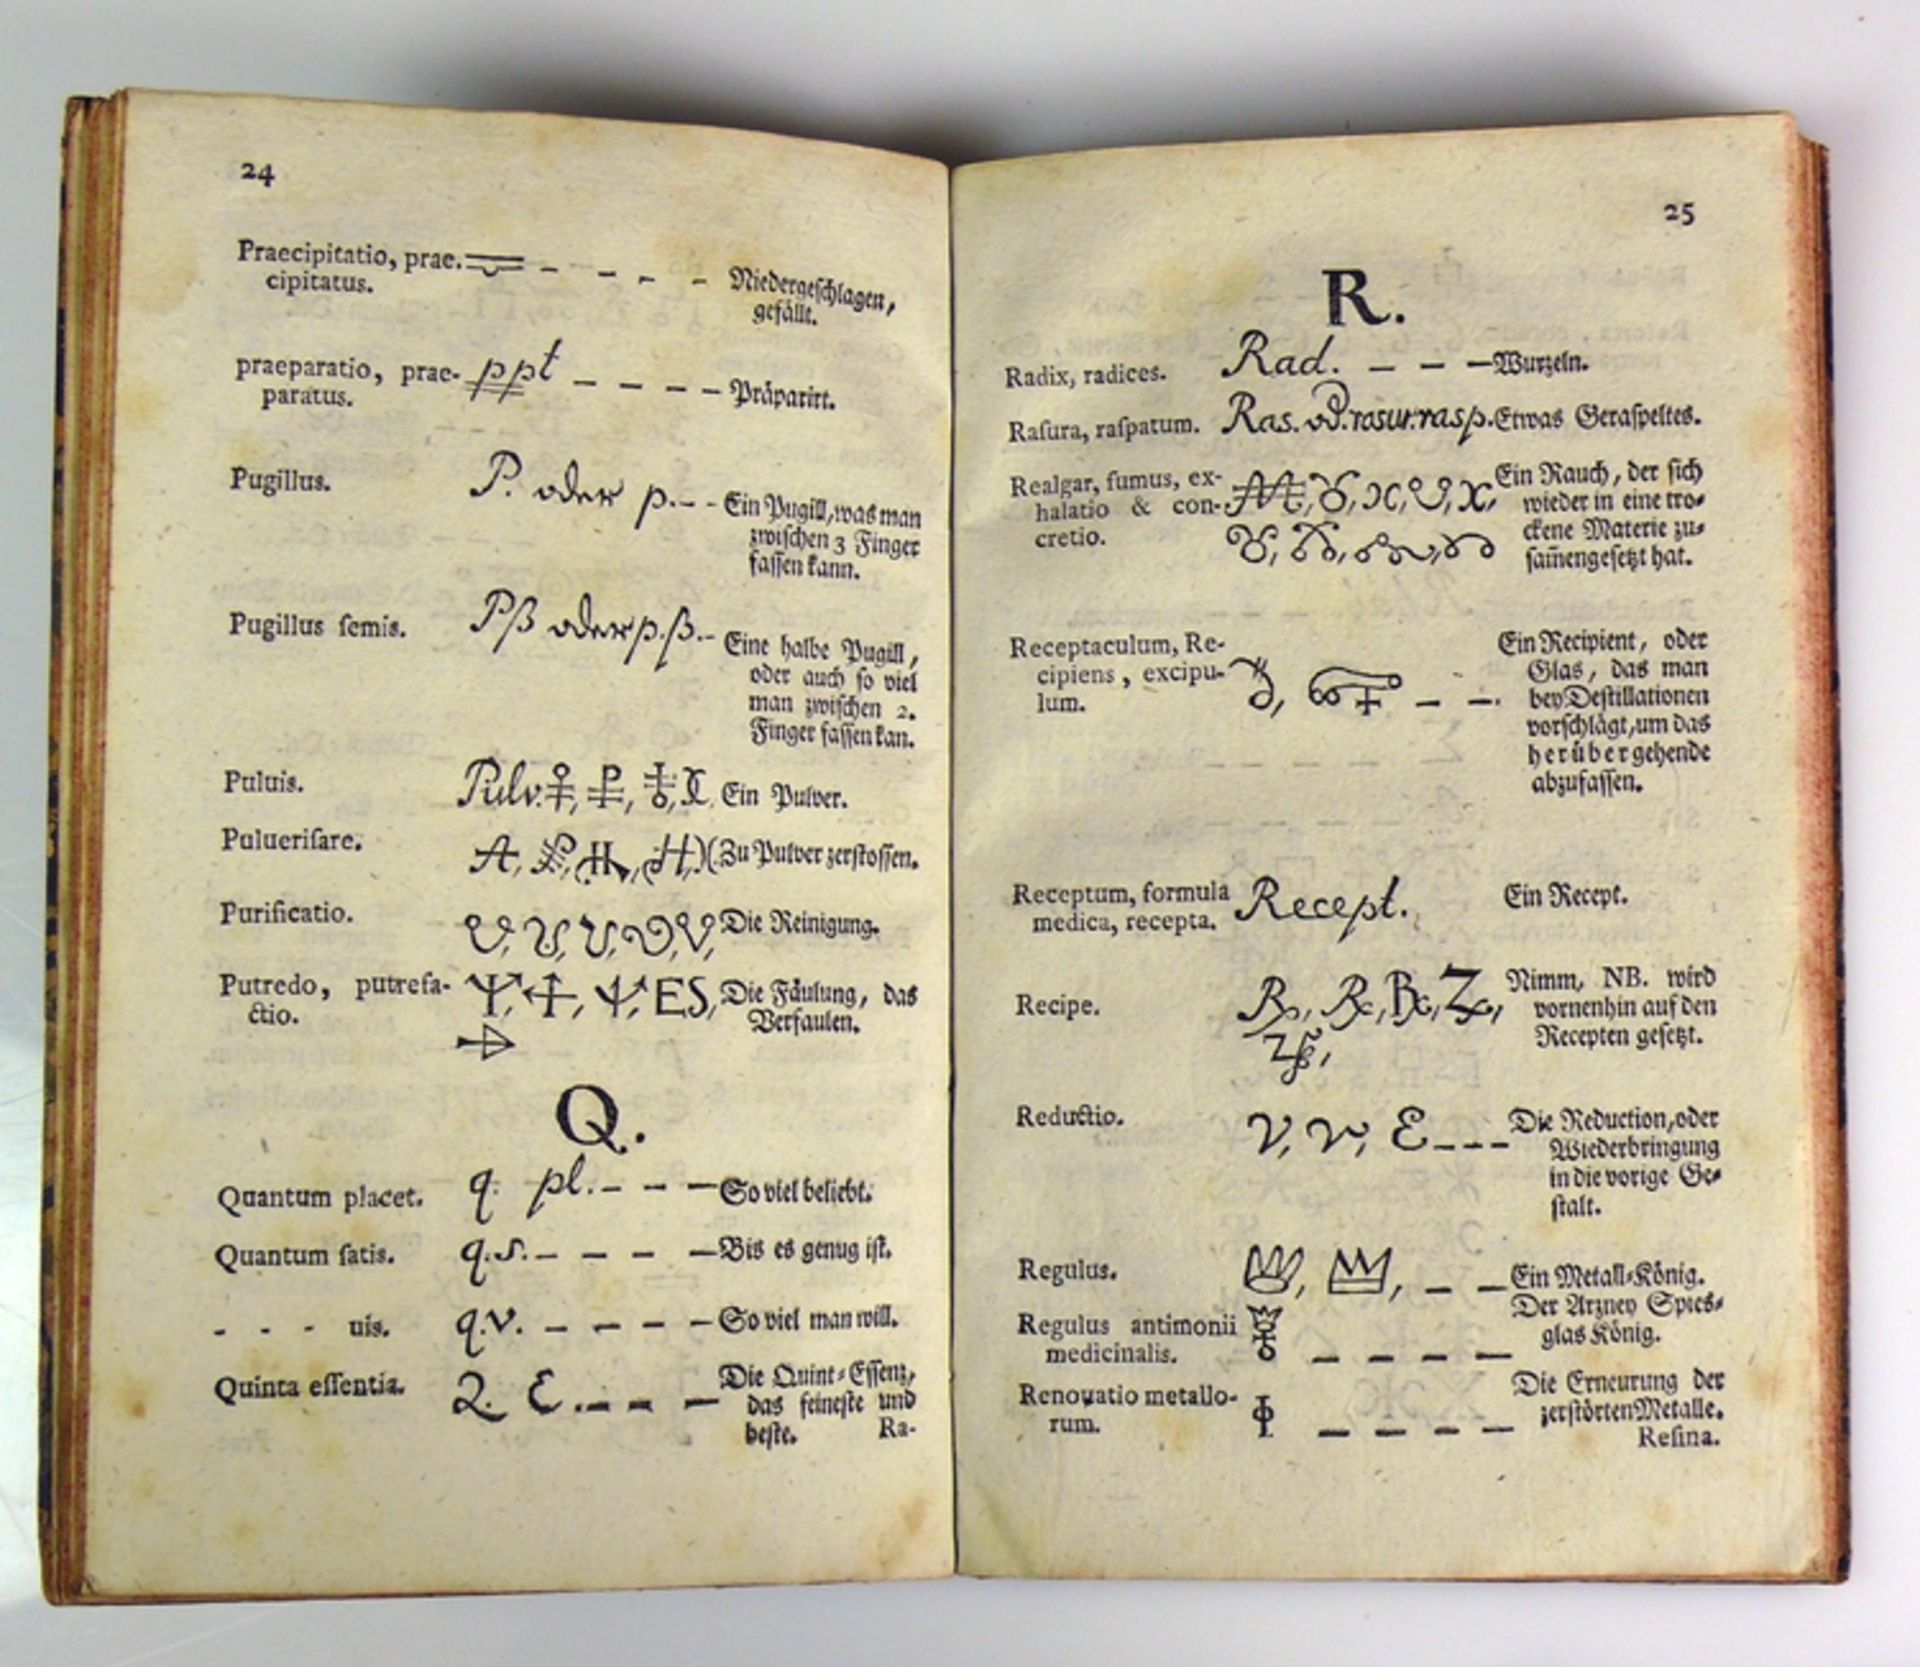 24
Praecipitatio, prae- Niedergeschlagen,
cipitatus. gefällt.
praeparatio, prae- ppt Präparirt.
paratus.
Pugillus. P. oder p. Ein Pugill, was man
zwischen 3 Finger
fassen kann.
Pugillus ſemis. Pß oder p.ß. Eine halbe Pugill,
oder auch so viel
man zwischen 2.
Finger fassen kan.
Puluis. Pulv. Ein Pulver.
Pulueriſare. Zu Pulver zerstossen.
Purificatio. Die Reinigung.
Putredo, putrefa- Die Fäulung, das
ctio. Verfaulen.
Q.
Quantum placet. q. pl. So viel beliebt.
Quantum ſatis. q.s. Bis es genug ist.
- - - uis. q.v. So viel man will.
Quinta eſſentia. Q. E. Die Quint-Essenz,
das feineste und
beste. Ra-
25
R.
Radix, radices. Rad. Wurzeln.
Raſura, raſpatum. Ras. od. rasur. rasp. Etwas Geraspeltes.
Realgar, fumus, ex- Ein Rauch, der sich
halatio & con- wieder in eine tro-
cretio. ckene Materie zu-
sam̃engesetzt hat.
Receptaculum, Re- Ein Recipient, oder
cipiens, excipu- Glas, das man
lum. bey Destillationen
vorschlägt, um das
herübergehende
abzufassen.
Receptum, formula Recept. Ein Recept.
medica, recepta.
Recipe. Nimm, NB. wird
vornenhin auf den
Recepten gesetzt.
Reductio. Die Reduction, oder
Wiederbringung
in die vorige Ge-
stalt.
Regulus. Ein Metall-König.
Regulus antimonii Der Arzney Spies-
medicinalis. glas König.
Renouatio metallo- Die Erneurung der
rum. zerstörten Metalle.
Reſina.